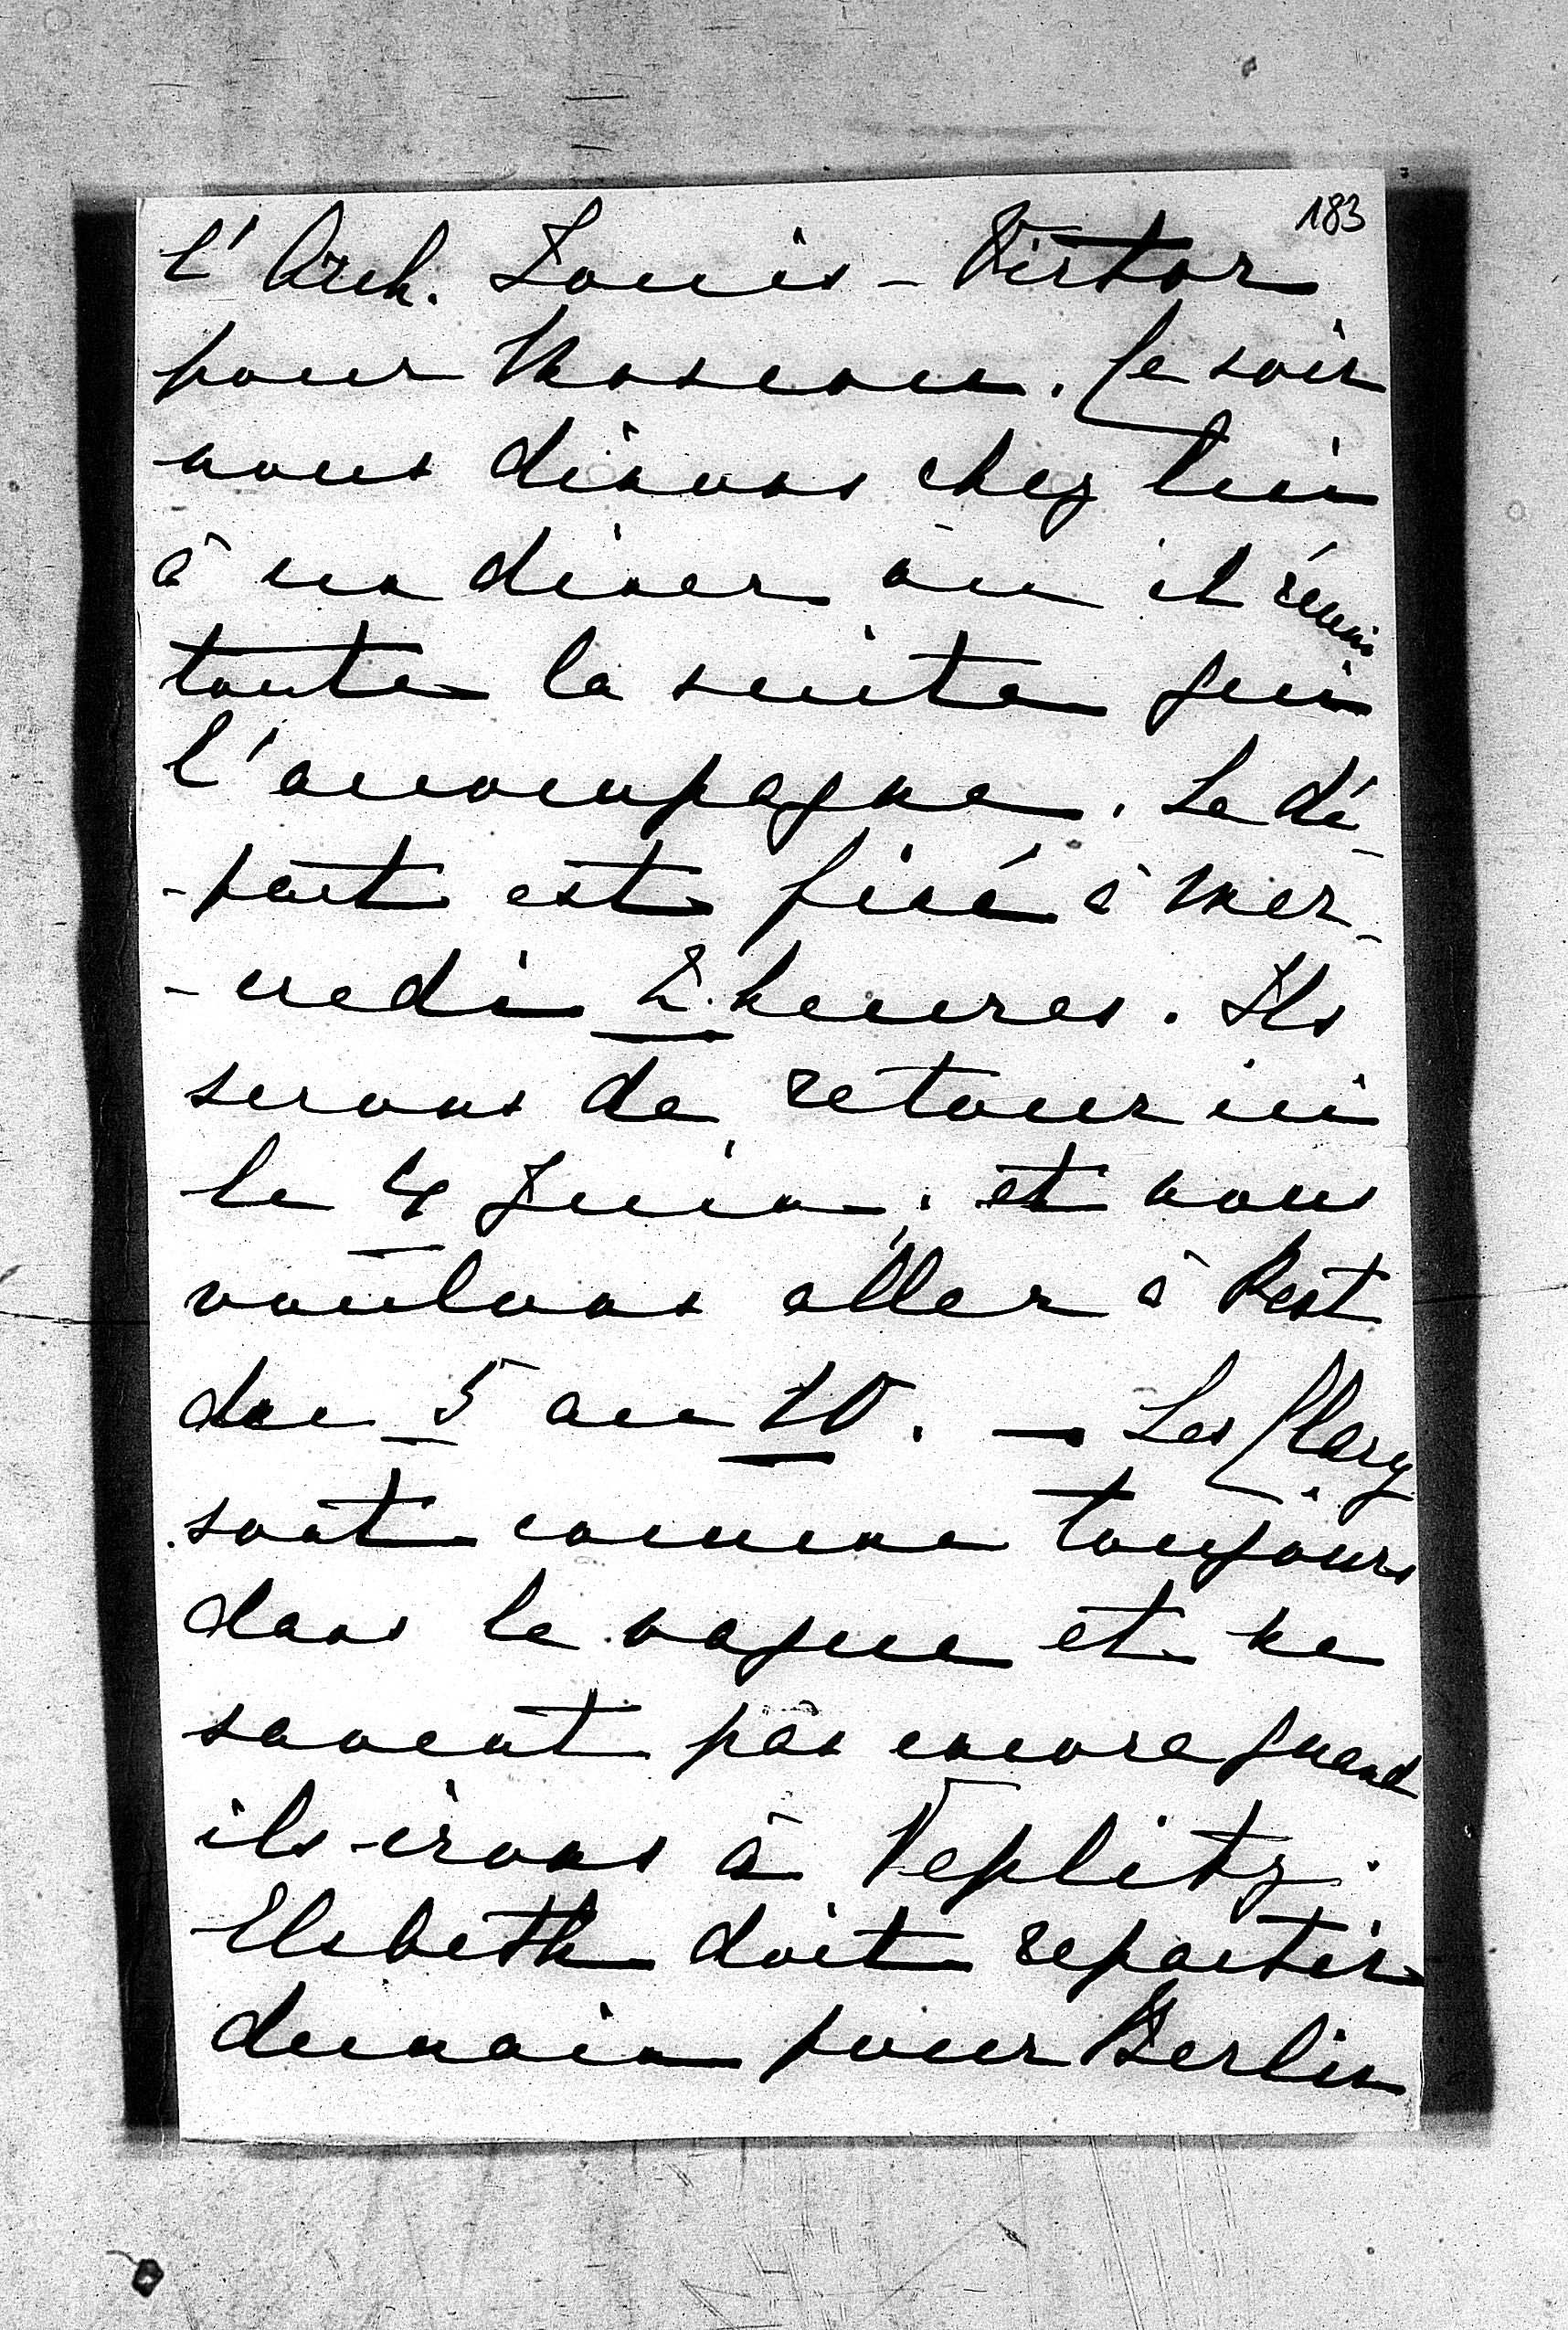 183
l'Arch. Louis-Victor
pour Moscou. Ce soir
nous dinons chez lui
à un diner où il réunis
toute la suite qui
l'accompagne. Le dé-
-part est fixé à Mer-
-credi 2 heures. Ils
serons de retour ici
le 4 Juin, et nous
voulons aller à Pest
du 5 au 10. — Les Clary
sont comme toujours
dans le vague et ne
savent pas encore quand
ils irons à Teplitz.
Elsbeth doit repartir
demain pour Berlin